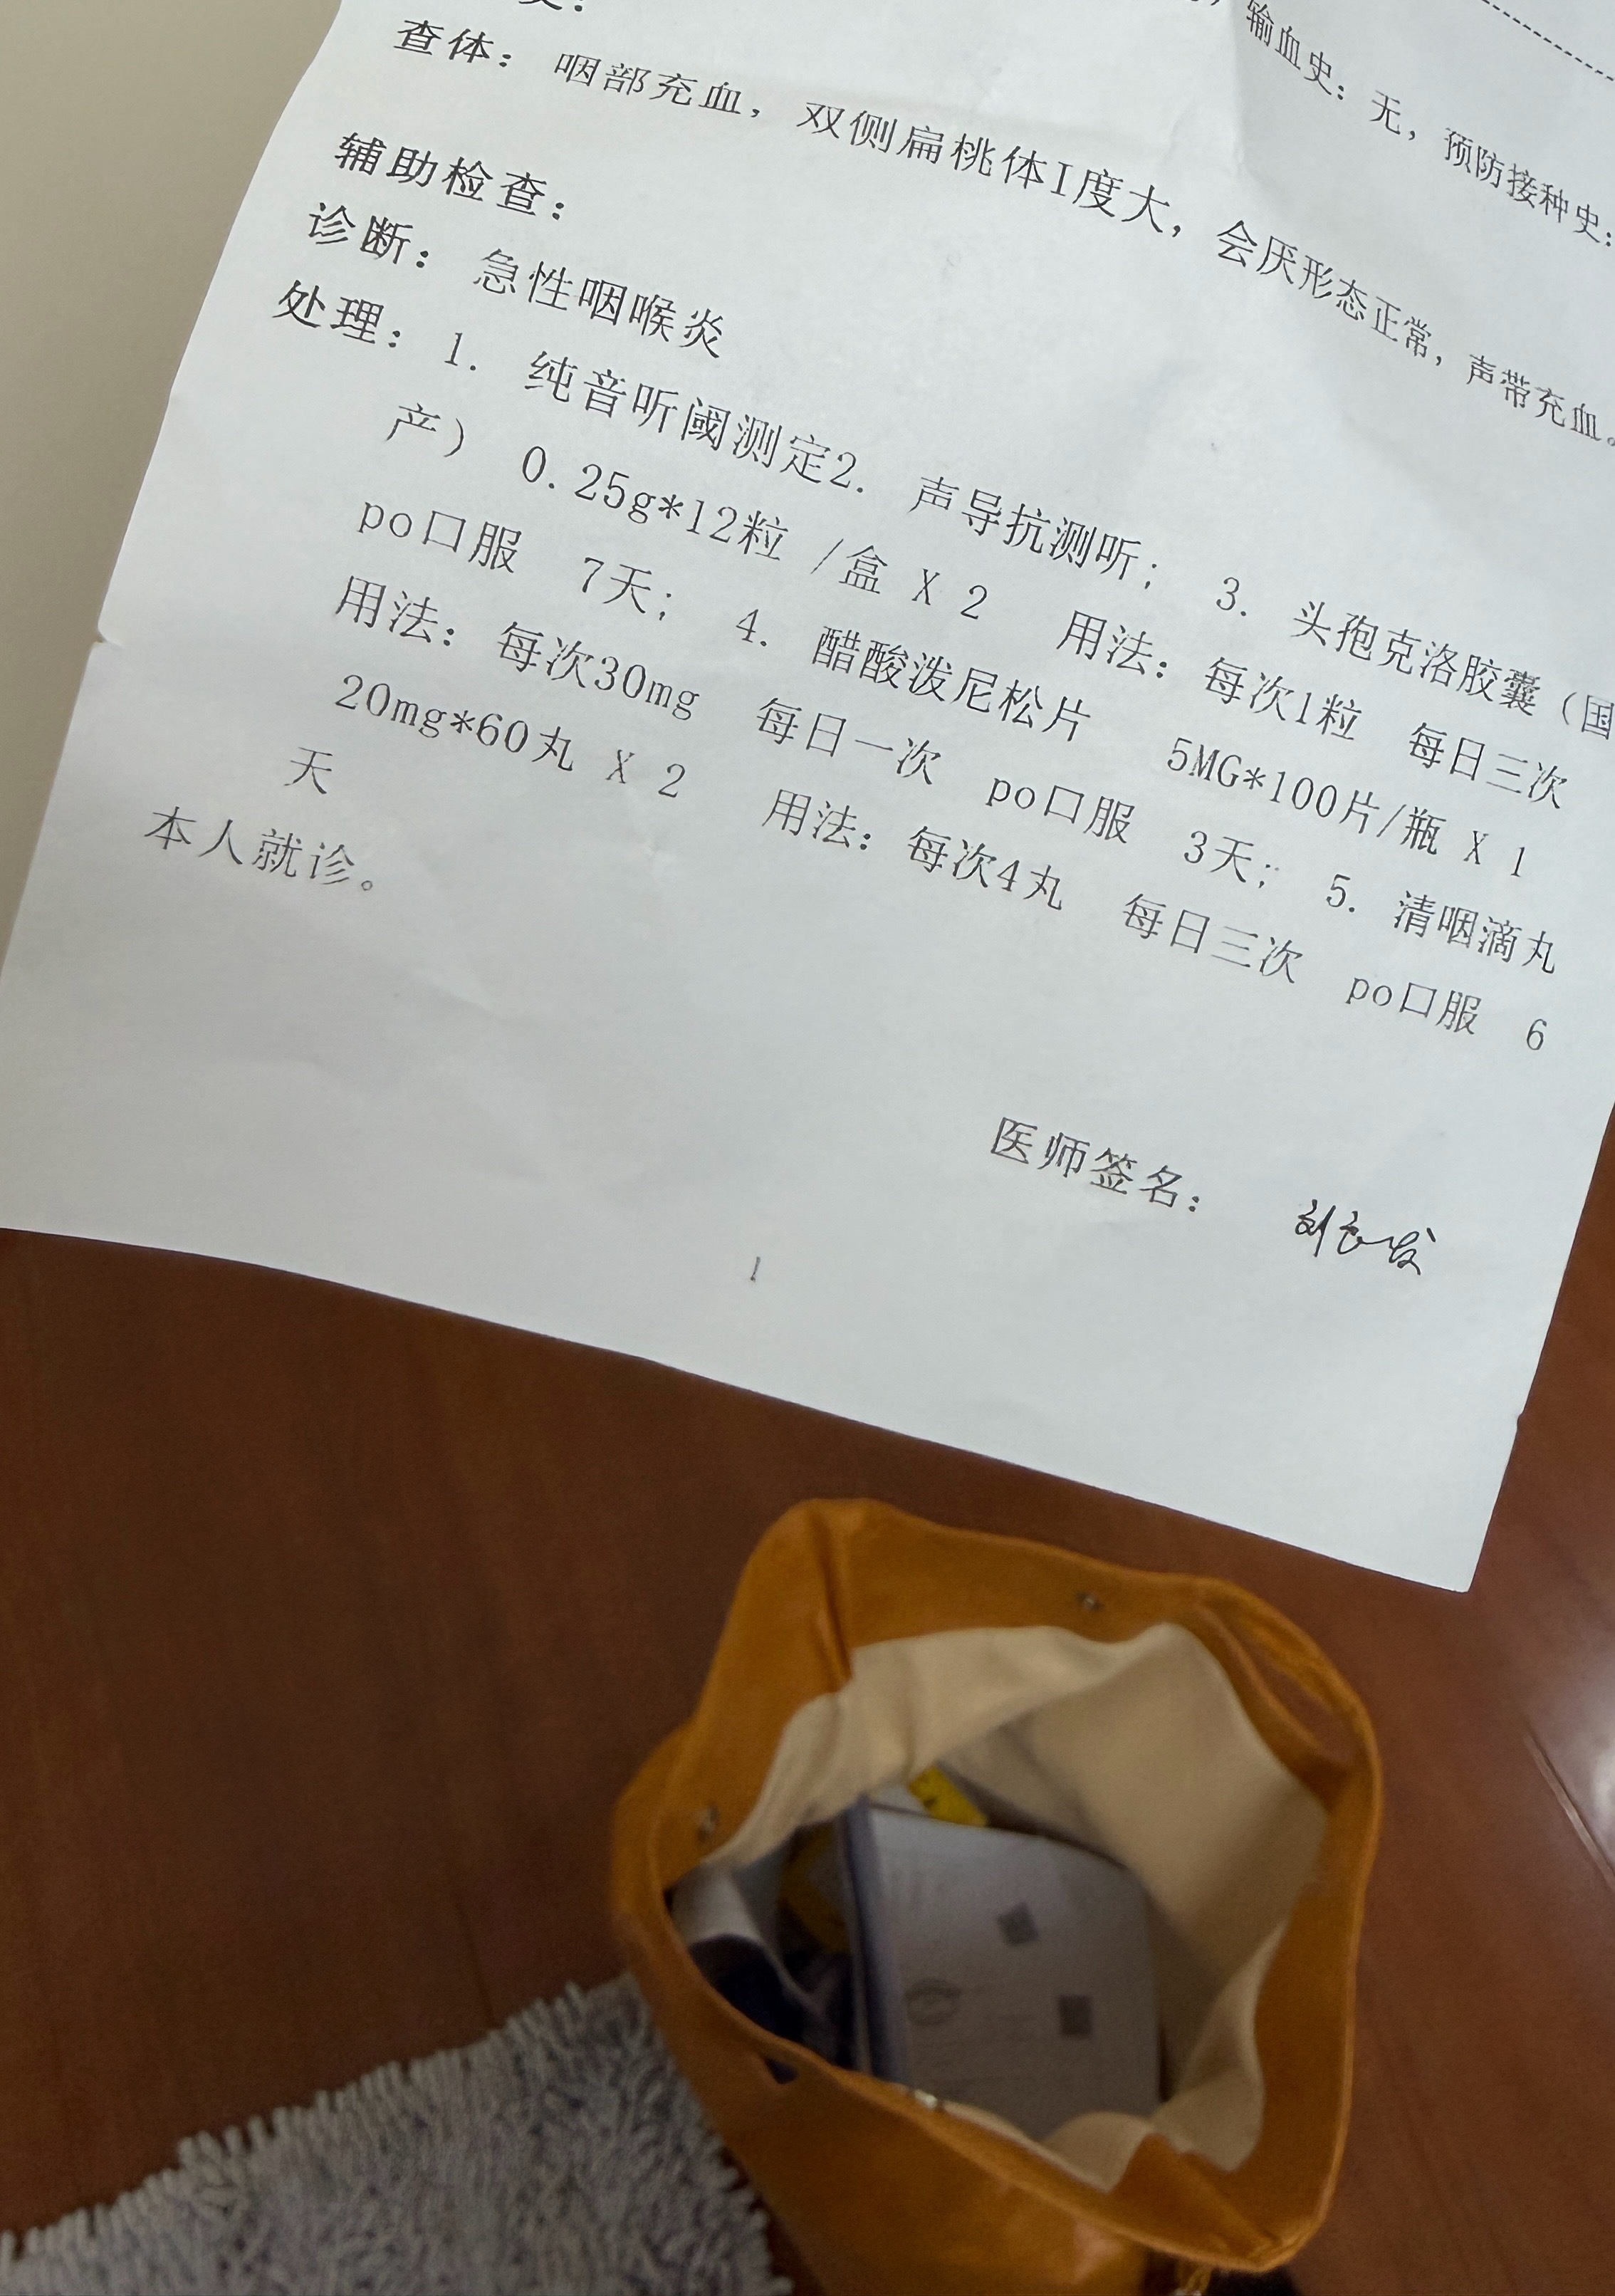 输血史：无，预防接种史：
查体： 咽部充血，双侧扁桃体I度大，会厌形态正常，声带充血。
辅助检查：
诊断： 急性咽喉炎
处理： 1. 纯音听阈测定2. 声导抗测听； 3. 头孢克洛胶囊（国
产） 0.25g*12粒 /盒 X 2 用法：每次1粒 每日三次
po口服 7天； 4. 醋酸泼尼松片 5MG*100片/瓶 X 1
用法：每次30mg 每日一次 po口服 3天； 5. 清咽滴丸
20mg*60丸 X 2 用法：每次4丸 每日三次 po口服 6
天
本人就诊。
医师签名：
1